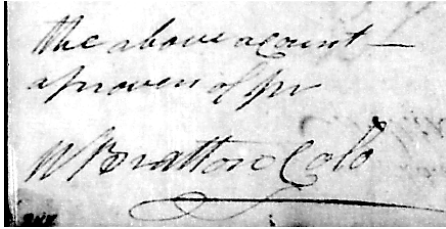 the above acount —
aproven of pr
W Bratton Colo